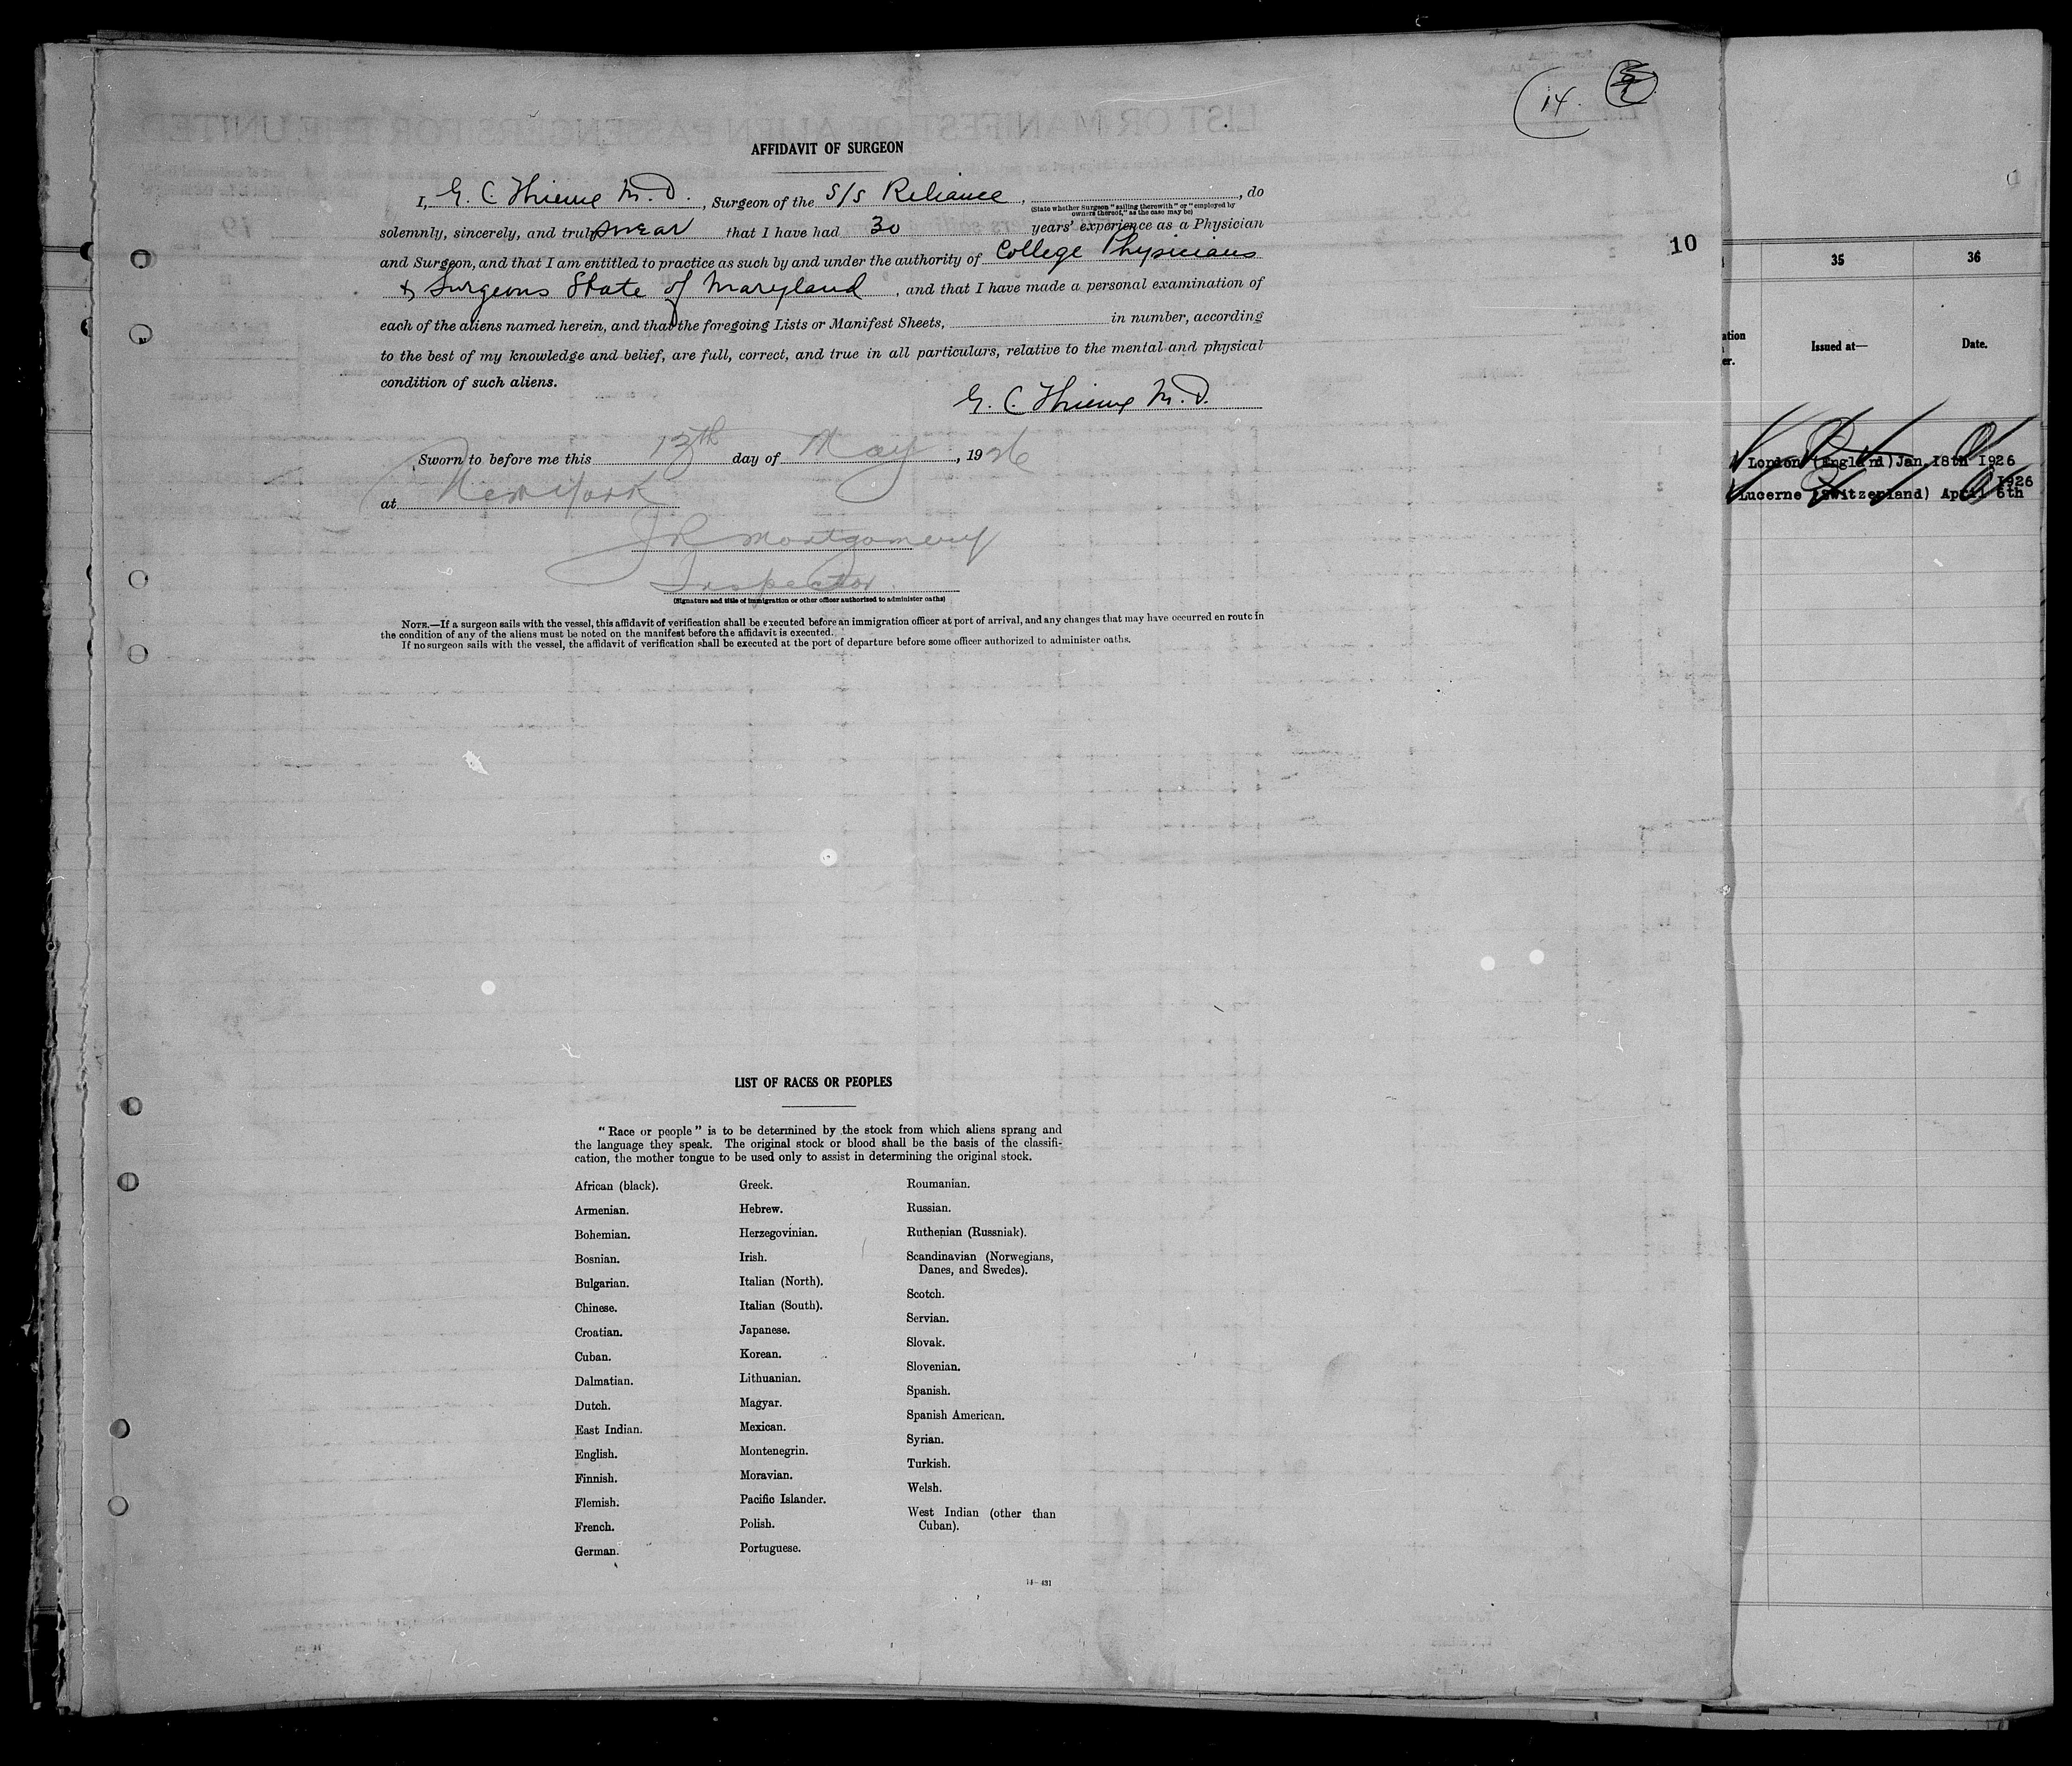 14.
AFFIDAVIT OF SURGEON
I, G. C. Thieme M.D., Surgeon of the S/S Reliance, , do
(State whether Surgeon "sailing therewith" or "employed by
owners thereof," as the case may be)
solemnly, sincerely, and truly swear that I have had 30 years' experience as a Physician
and Surgeon, and that I am entitled to practice as such by and under the authority of College Physicians
& Surgeons State of Maryland, and that I have made a personal examination of
each of the aliens named herein, and that the foregoing Lists or Manifest Sheets, in number, according
to the best of my knowledge and belief, are full, correct, and true in all particulars, relative to the mental and physical
condition of such aliens.
G. C. Thieme M.D.
Sworn to before me this 13th day of May, 1926
at New York
J R Montgomery
Inspector
(Signature and title of immigration or other officer authorized to administer oaths)
NOTE.—If a surgeon sails with the vessel, this affidavit of verification shall be executed before an immigration officer at port of arrival, and any changes that may have occurred en route in
the condition of any of the aliens must be noted on the manifest before the affidavit is executed.
If no surgeon sails with the vessel, the affidavit of verification shall be executed at the port of departure before some officer authorized to administer oaths.
LIST OF RACES OR PEOPLES
"Race or people" is to be determined by the stock from which aliens sprang and
the language they speak. The original stock or blood shall be the basis of the classifi-
cation, the mother tongue to be used only to assist in determining the original stock.
African (black).
Armenian.
Bohemian.
Bosnian.
Bulgarian.
Chinese.
Croatian.
Cuban.
Dalmatian.
Dutch.
East Indian.
English.
Finnish.
Flemish.
French.
German.
Greek.
Hebrew.
Herzegovinian.
Irish.
Italian (North).
Italian (South).
Japanese.
Korean.
Lithuanian.
Magyar.
Mexican.
Montenegrin.
Moravian.
Pacific Islander.
Polish.
Portuguese.
Roumanian.
Russian.
Ruthenian (Russniak).
Scandinavian (Norwegians,
Danes, and Swedes).
Scotch.
Servian.
Slovak.
Slovenian.
Spanish.
Spanish American.
Syrian.
Turkish.
Welsh.
West Indian (other than
Cuban).
14—431
10
35
36
Issued at—
Date.
London (England) Jan. 18th 1926
1926
Lucerne (Switzerland) April 6th